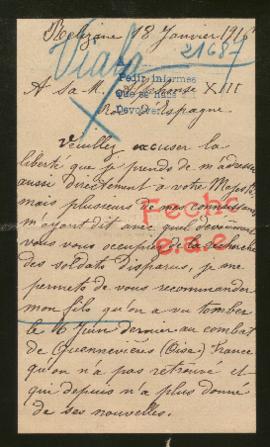 Relizane 18 Janvier 1916
21687
Viafa
Pedir informes
A sa M. Alphonse XIII
Que se haga
Roi d'Espagne
Devolver
Veuillez excuser la
liberté que je prends de m'adresser
aussi directement à votre Majesté
mais plusieurs de mes connaissances
Fecho
m'ayant dit avec quel dévouement
vous vous occupiez de la recherche
e.a.e.
des soldats disparus, je me
permets de vous recommander
mon fils qu'on a vu tomber
le 6 Juin dernier au combat
de Quennevières (Oise) France
qu'on n'a pas retrouvé et
qui depuis n'a plus donné
de ses nouvelles.